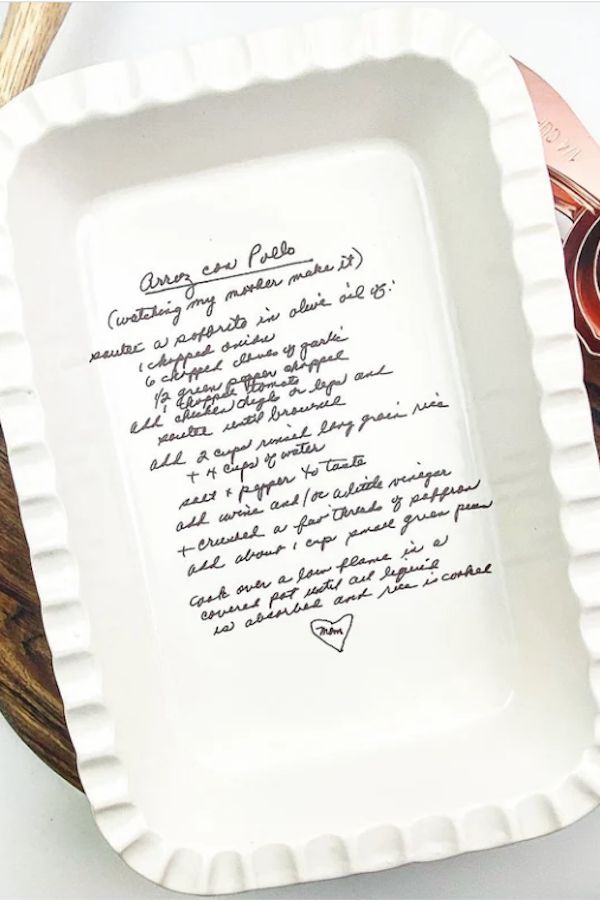 Arroz con Pollo
(watching my mother make it)
sautee a sofbrito in olive oil of:
1 chopped onion
6 chopped cloves of garlic
1/2 green pepper chopped
1 chopped tomato
add chicken thighs or legs and
sautee until browned
add 2 cups rinsed long grain rice
+ 4 cups of water
salt + pepper to taste
add wine and/or a little vinegar
+ crushed a few threads of saffron
add about 1 cup small green peas
cook over a low flame in a
covered pot until all liquid
is absorbed and rice is cooked
mom
1/4 CUP